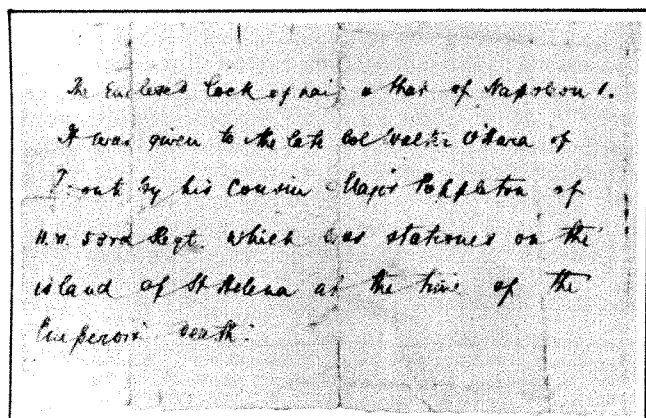 The Enclosed lock of hair is that of Napoleon 1.
It was given to the late Col Walter O'Hara of
Toronto by his Cousin Major Poppleton of
H.M. 53rd Regt. which was stationed on the
island of St Helena at the time of the
Emperors death.